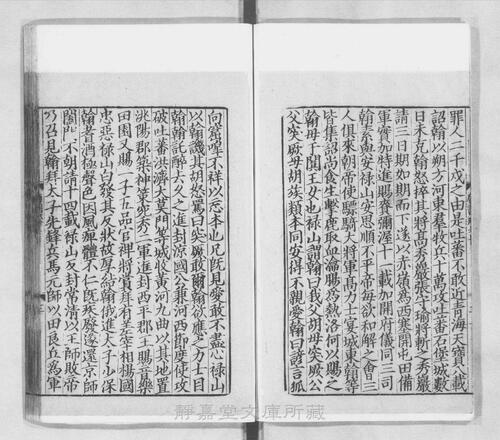 罪人二千戍之由是吐蕃不敢近青海天寶八載
詔翰以朔方河東羣牧兵十萬攻吐蕃石堡城數
日未克翰怒捽其將高秀巖張守瑜將斬之秀巖
請三日期如期而下遂以赤嶺爲西塞開屯田備
軍實加特進賜賚彌渥十一載加開府儀同三司
翰素與安祿山安思順不平帝每欲和解之會三
人俱來朝帝使驃騎大將軍高力士宴城東翰等
皆集詔尚食生擊鹿取血瀹腸爲熱洛何以賜之
翰母于闐王女也祿山謂翰曰我父胡母突厥公
父突厥母胡族類本同安得不親愛翰曰諺言狐
向窟嘷不祥以忘本也兄旣見愛敢不盡心祿山
以翰譏其胡怒罵曰突厥敢爾翰欲應之力士目
翰翰託醉去久之進封涼國公兼河西節度使攻
破吐蕃洪濟大莫門等城收黃河九曲以其地置
洮陽郡築神策宛秀二軍進封西平郡王賜音樂
田園又賜一子五品官裨將賞拜有差宰相楊國
忠惡祿山白發其反狀故厚結翰俄進太子少保
翰耆酒極聲色因風痹體不仁旣疾廢遂還京師
闔門不朝請十四載祿山反封常清以王師敗帝
乃召見翰拜太子先鋒兵馬元帥以田良丘爲軍
靜嘉堂文庫所藏